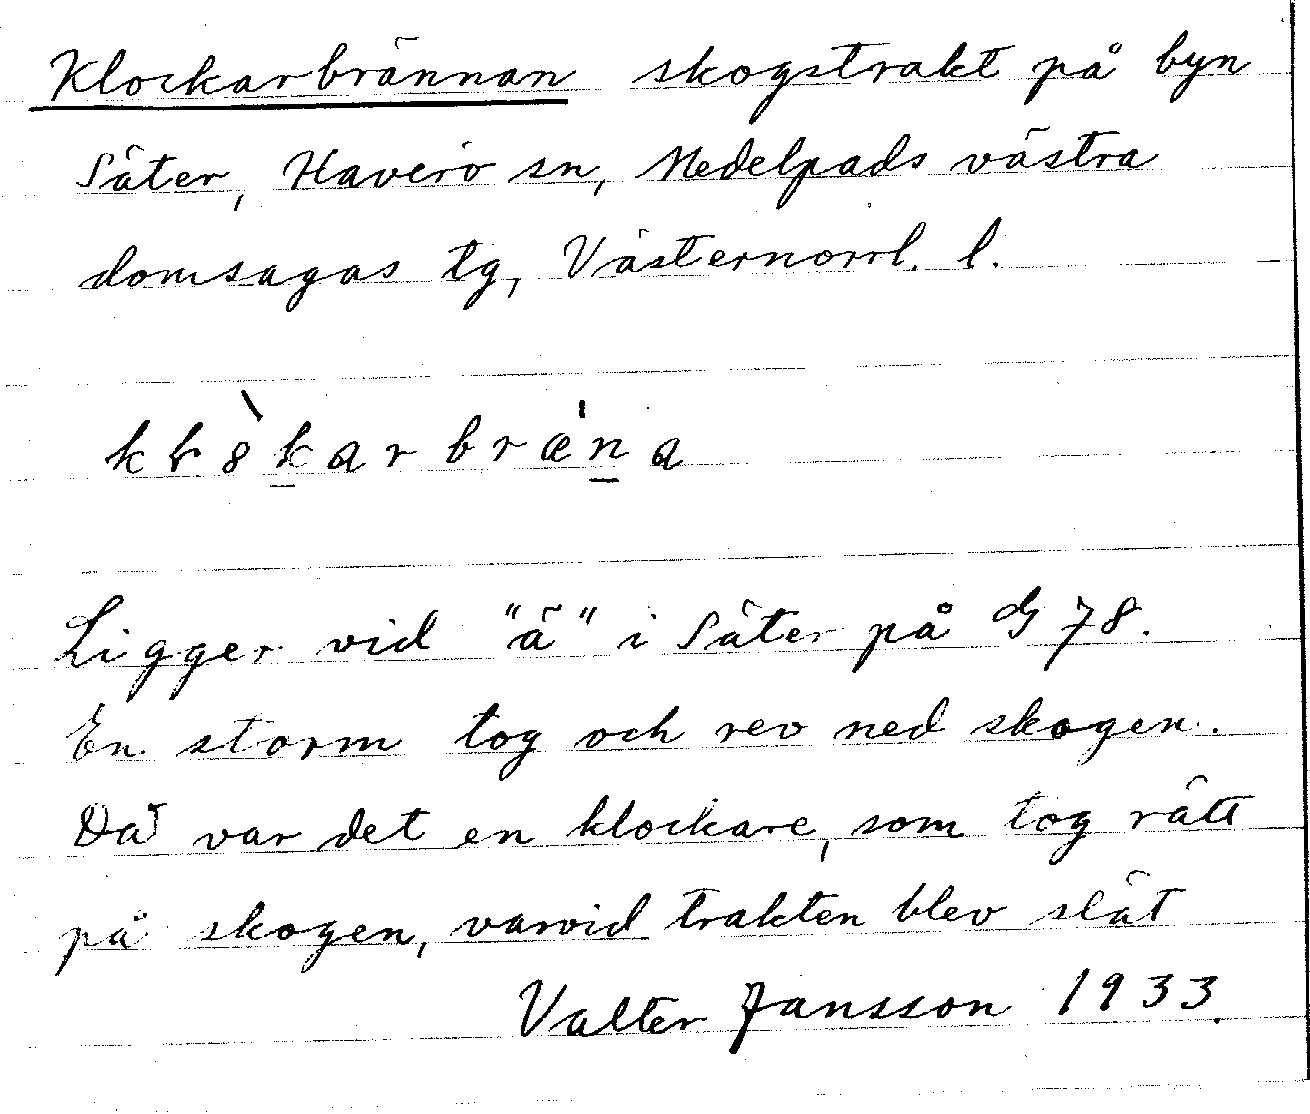 Klockarbrännan skogstrakt på byn
Säter, Haverö sn, Medelpads västra
domsagas tg, Västernorrl. l.
Ligger vid "ä" i Säter på G 78.
En storm tog och rev ned skogen.
Då var det en klockare, som tog rätt
på skogen, varvid trakten blev slät
Valter Jansson 1933.